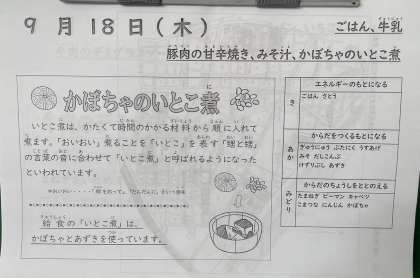 9月18日(木)
ごはん、牛乳
豚肉の甘辛焼き、みそ汁、かぼちゃのいとこ煮
かぼちゃのいとこ煮
いとこ煮は、かたくて時間のかかる材料から順に入れて
煮ます。「おいおい」煮ることを「いとこ」を表す「甥甥」
の言葉の音に合わせて「いとこ煮」と呼ばれるようになった
といわれています。
給食の「いとこ煮」は、
かぼちゃとあずきを使っています。
エネルギーのもとになる
き
ごはん さとう
からだをつくるもとになる
あか
ぎゅうにゅう ぶたにく うすあげ
みそ だいこんぶ
けずりぶし あずき
からだのちょうしをととのえる
みどり
たまねぎ ピーマン キャベツ
こまつな にんじん かぼちゃ